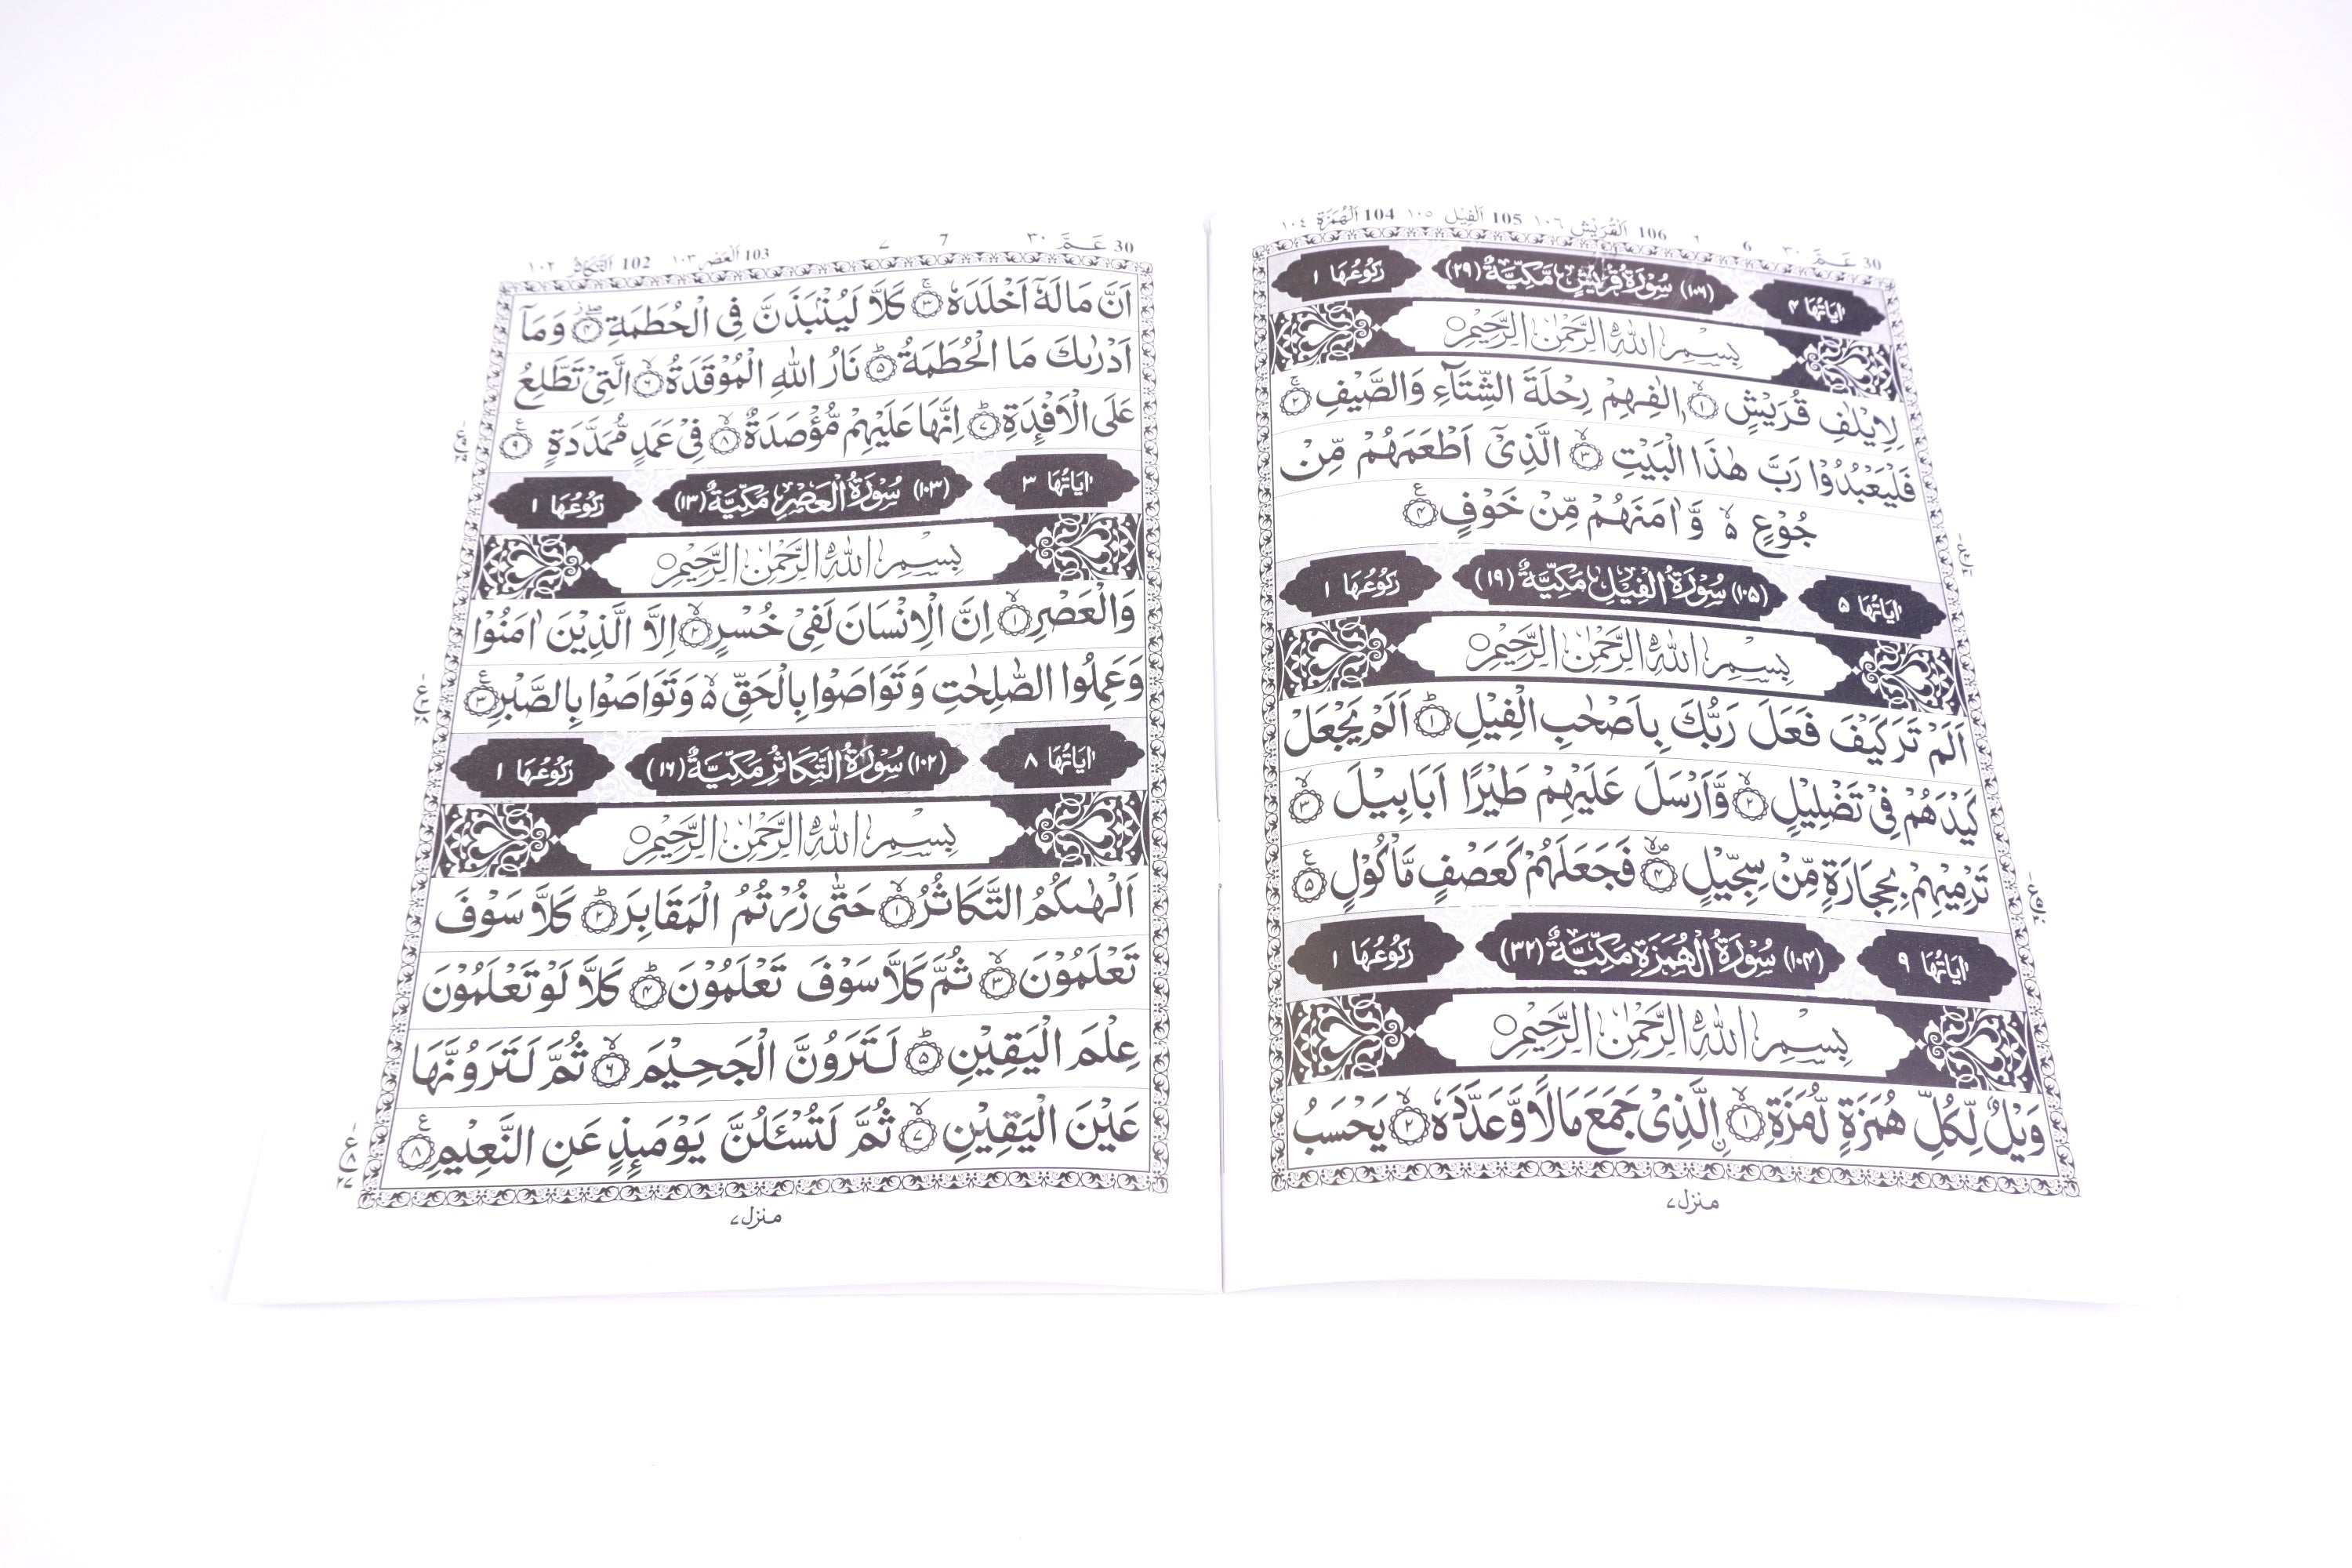 30 عَـمَّ ٣٠ 6 ٦ 106 اَلْقُرَيْش ١٠٦ 105 اَلْفِيْل ١٠٥ 104 اَلْهُمَزَة ١٠٤
اٰيَاتُهَا ۴ (۱۰۶) سُوْرَةُ قُرَيْشٍ مَّكِّيَّةٌ (۲۹) رُكُوْعُهَا ۱
بِسْمِ اللّٰهِ الرَّحْمٰنِ الرَّحِيْمِ
لِاِيْلٰفِ قُرَيْشٍ ۙ‏﴿۱﴾ اٖلٰفِهِمْ رِحْلَةَ الشِّتَآءِ وَالصَّيْفِ ۚ‏﴿۲﴾
فَلْيَعْبُدُوْا رَبَّ هٰذَا الْبَيْتِ ۙ‏﴿۳﴾ الَّذِىْٓ اَطْعَمَهُمْ مِّنْ
جُوْعٍ ۙ وَّاٰمَنَهُمْ مِّنْ خَوْفٍ ﴿۴﴾
اٰيَاتُهَا ۵ (۱۰۵) سُوْرَةُ الْفِيْلِ مَكِّيَّةٌ (۱۹) رُكُوْعُهَا ۱
بِسْمِ اللّٰهِ الرَّحْمٰنِ الرَّحِيْمِ
اَلَمْ تَرَ كَيْفَ فَعَلَ رَبُّكَ بِاَصْحٰبِ الْفِيْلِ ؕ‏﴿۱﴾ اَلَمْ يَجْعَلْ
كَيْدَهُمْ فِىْ تَضْلِيْلٍ ۙ‏﴿۲﴾ وَّاَرْسَلَ عَلَيْهِمْ طَيْرًا اَبَابِيْلَ ۙ‏﴿۳﴾
تَرْمِيْهِمْ بِحِجَارَةٍ مِّنْ سِجِّيْلٍ ﴿۴﴾ فَجَعَلَهُمْ كَعَصْفٍ مَّاْكُوْلٍ ﴿۵﴾
اٰيَاتُهَا ۹ (۱۰۴) سُوْرَةُ الْهُمَزَةِ مَكِّيَّةٌ (۳۲) رُكُوْعُهَا ۱
بِسْمِ اللّٰهِ الرَّحْمٰنِ الرَّحِيْمِ
وَيْلٌ لِّكُلِّ هُمَزَةٍ لُّمَزَةٍ ۙ‏﴿۱﴾ اۨلَّذِىْ جَمَعَ مَالًا وَّعَدَّدَهٗ ۙ‏﴿۲﴾ يَحْسَبُ
منزل ٧
30 عَـمَّ ٣٠ 7 ٧ 103 اَلْعَصْر ١٠٣ 102 اَلتَّكَاثُر ١٠٢
اَنَّ مَالَهٗٓ اَخْلَدَهٗ ۚ‏﴿۳﴾ كَلَّا لَيُنْۢبَذَنَّ فِى الْحُطَمَةِ ﴿۴﴾ وَمَآ
اَدْرٰىكَ مَا الْحُطَمَةُ ؕ‏﴿۵﴾ نَارُ اللّٰهِ الْمُوْقَدَةُ ۙ‏﴿۶﴾ الَّتِىْ تَطَّلِعُ
عَلَى الْاَفْـِٕدَةِ ؕ‏﴿۷﴾ اِنَّهَا عَلَيْهِمْ مُّؤْصَدَةٌ ۙ‏﴿۸﴾ فِىْ عَمَدٍ مُّمَدَّدَةٍ ﴿۹﴾
اٰيَاتُهَا ۳ (۱۰۳) سُوْرَةُ الْعَصْرِ مَكِّيَّةٌ (۱۳) رُكُوْعُهَا ۱
بِسْمِ اللّٰهِ الرَّحْمٰنِ الرَّحِيْمِ
وَالْعَصْرِ ۙ‏﴿۱﴾ اِنَّ الْاِنْسَانَ لَفِىْ خُسْرٍ ۙ‏﴿۲﴾ اِلَّا الَّذِيْنَ اٰمَنُوْا
وَعَمِلُوا الصّٰلِحٰتِ وَتَوَاصَوْا بِالْحَقِّ ۙ وَتَوَاصَوْا بِالصَّبْرِ ﴿۳﴾
اٰيَاتُهَا ۸ (۱۰۲) سُوْرَةُ التَّكَاثُرِ مَكِّيَّةٌ (۱۶) رُكُوْعُهَا ۱
بِسْمِ اللّٰهِ الرَّحْمٰنِ الرَّحِيْمِ
اَلْهٰىكُمُ التَّكَاثُرُ ۙ‏﴿۱﴾ حَتّٰى زُرْتُمُ الْمَقَابِرَ ؕ‏﴿۲﴾ كَلَّا سَوْفَ
تَعْلَمُوْنَ ۙ‏﴿۳﴾ ثُمَّ كَلَّا سَوْفَ تَعْلَمُوْنَ ؕ‏﴿۴﴾ كَلَّا لَوْ تَعْلَمُوْنَ
عِلْمَ الْيَقِيْنِ ؕ‏﴿۵﴾ لَتَرَوُنَّ الْجَحِيْمَ ۙ‏﴿۶﴾ ثُمَّ لَتَرَوُنَّهَا
عَيْنَ الْيَقِيْنِ ۙ‏﴿۷﴾ ثُمَّ لَتُسْـَٔلُنَّ يَوْمَٮِٕذٍ عَنِ النَّعِيْمِ ﴿۸﴾
منزل ٧